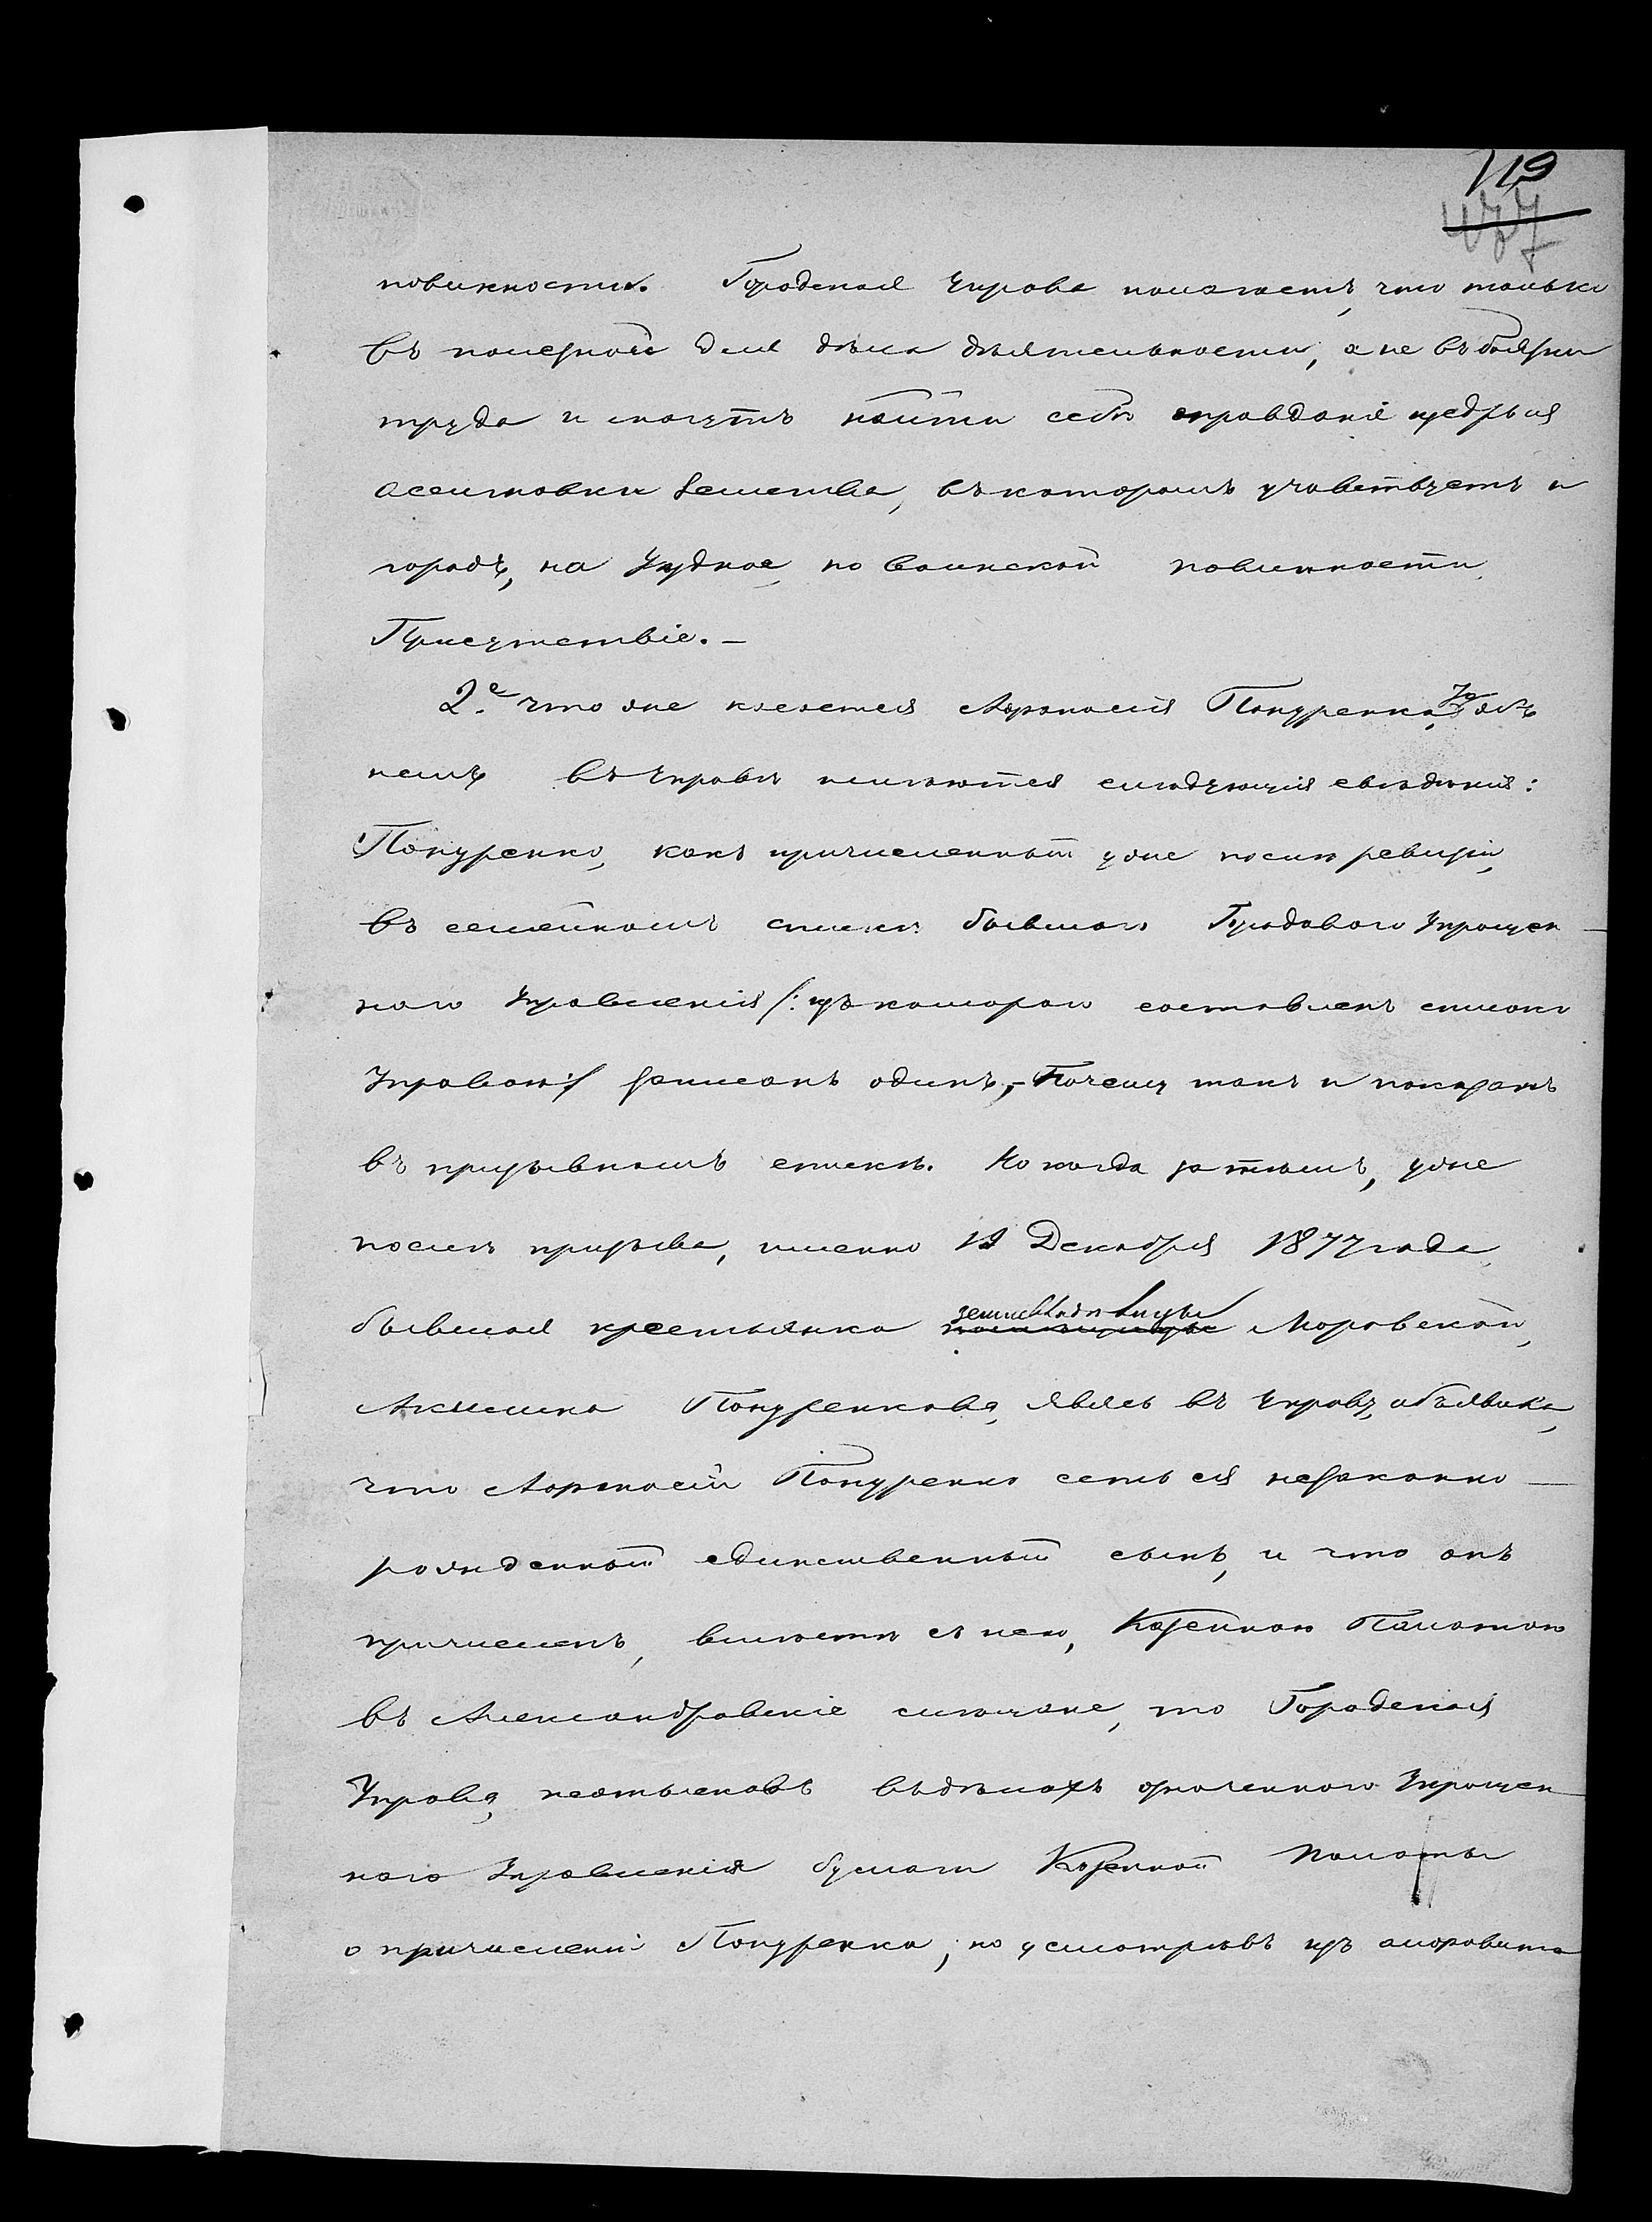 119
477
повинности. Городская Управа полагаетъ, что только
въ полезной для дѣла дѣятельности, а не въ боязни
труда и могутъ найти себѣ оправданіе щедрыя
ассигновки Земства, въ которомъ участвуетъ и
городъ, на Уѣздное по воинской повинности
Присутствіе. –
2.е что же касается Афанасія Покуренка, то объ
немъ въ Управѣ имѣются слѣдующія свѣдѣнія:
Покуренко, какъ причисленный уже послѣ ревизіи,
въ семейномъ спискѣ бывшаго Городоваго Упрощен-
наго Управленія /: изъ котораго составленъ списокъ
Управою :/ записанъ одинъ, – Почему такъ и показанъ
въ призывномъ спискѣ. Но когда затѣмъ, уже
послѣ призыва, именно 12 Декабря 1877 года
бывшая крестьянка землевладѣлицы Моровской,
Акилина Покуренкова, явясь въ Управу, объявила,
что Афанасій Покуренко есть ея незаконно-
рожденный единственный сынъ, и что онъ
причисленъ, вмѣстѣ съ нею, Казенною Палатою
въ Александровскіе мѣщане, то Городская
Управа, неотыскавъ въ дѣлахъ означеннаго Упрощен-
наго Управленія бумаги Казенной Палаты
о причисленіи Покуренка, но усмотрѣвъ изъ